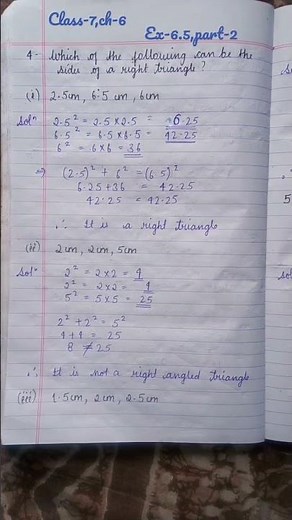 Class-7,ch-6
Ex-6.5,part-2
4- Which of the following can be the
sides of a right triangle?
(i) 2.5cm, 6.5 cm, 6cm
Solⁿ 2.5² = 2.5 x 2.5 = 6.25
6.5² = 6.5 x 6.5 = 42.25
6² = 6 x 6 = 36
⇒ (2.5)² + 6² = (6.5)²
6.25 + 36 = 42.25
42.25 = 42.25
∴ It is a right triangle
(ii) 2cm, 2cm, 5cm
Solⁿ 2² = 2 x 2 = 4
2² = 2 x 2 = 4
5² = 5 x 5 = 25
2² + 2² = 5²
4 + 4 = 25
8 ≠ 25
∴ It is not a right angled triangle
(iii) 1.5cm, 2cm, 2.5cm